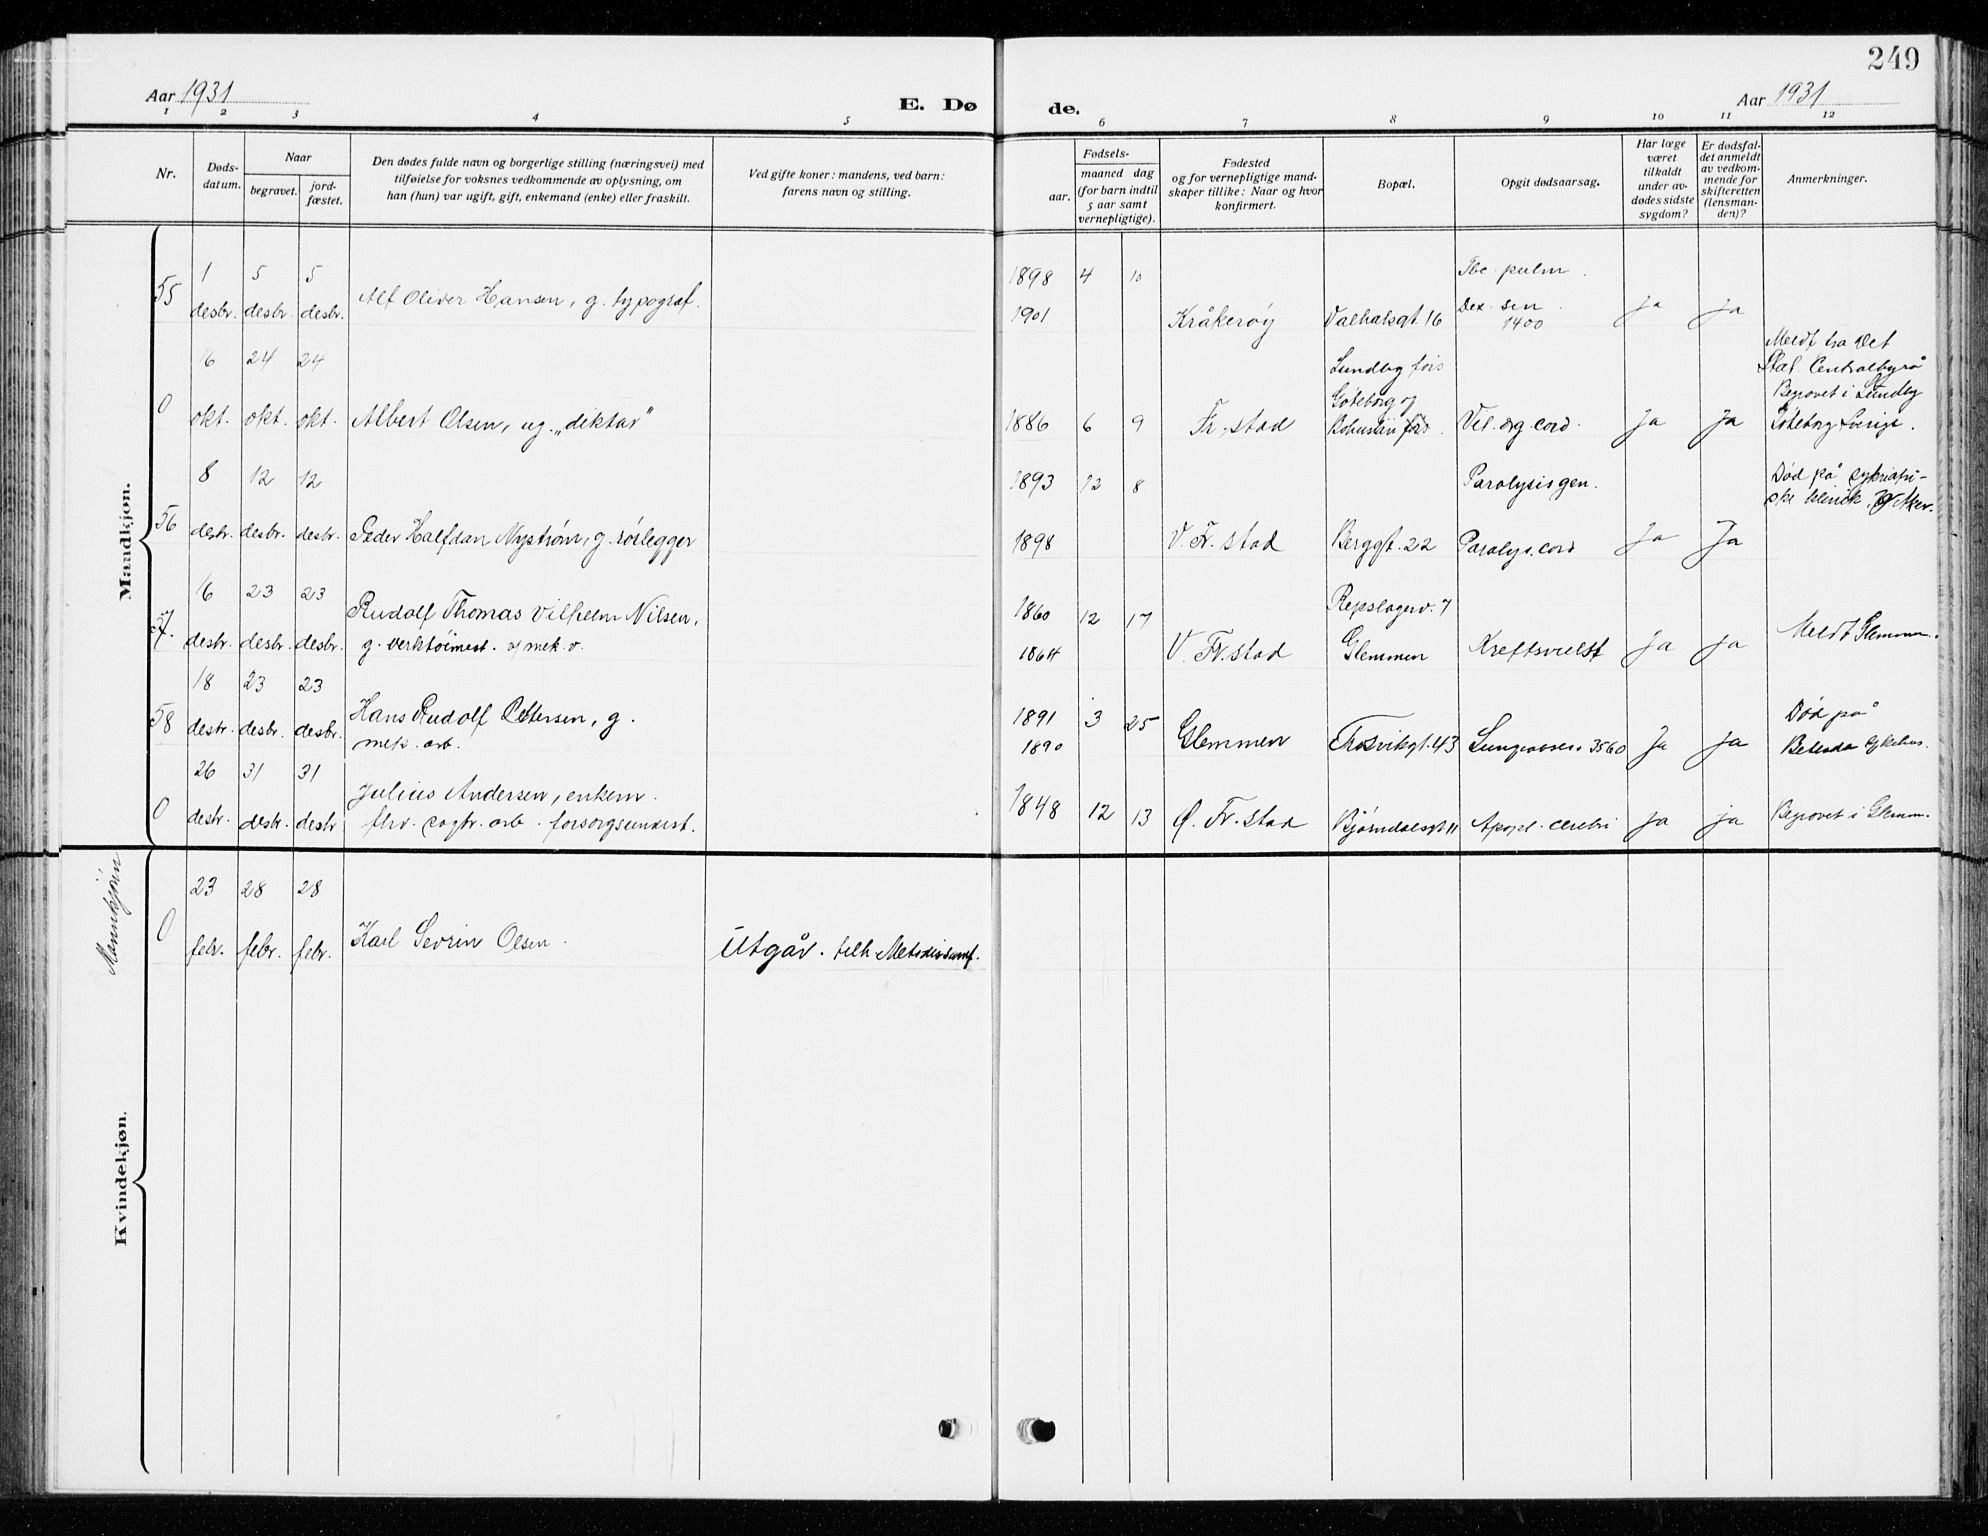 249
Aar 1931
E. Dø
de.
Aar 1931
1 2 3 4 5 6 7 8 9 10 11 12
Nr.
Døds-
datum.
Naar
begravet.
jord-
fæstet.
Den dødes fulde navn og borgerlige stilling (næringsvei) med
tilføielse for voksnes vedkommende av oplysning, om
han (hun) var ugift, gift, enkemand (enke) eller fraskilt.
Ved gifte koner: mandens, ved barn:
farens navn og stilling.
Fødsels-
aar.
maaned dag
(for barn indtil
5 aar samt
vernepligtige).
Fødested
og for vernepligtige mand-
skaper tillike: Naar og hvor
konfirmert.
Bopæl.
Opgit dødsaarsag.
Har læge
været
tilkaldt
under av-
dødes sidste
sygdom?
Er dødsfal-
det anmeldt
av vedkom-
mende for
skifteretten
(lensman-
den)?
Anmerkninger.
Mandkjøn.
55
1 5 5
desbr. desbr. desbr.
Alf Oliver Hansen, g. typograf.
1898 4 10
1901
Kråkerøy
Valhalsgt. 16
Tbc. pulm.
sen.
1400
Ja Ja
0
16 24 24
okt. okt. okt.
Albert Olsen, ug. „diktar"
1886 6 9
Fr.stad
Lundby
Göteborg og
Ja Ja
Meldt fra Det
Stat. Centralbyrå
Begravet i Lundby
Göteborg Sverige.
56
8 12 12
desbr. desbr. desbr.
Peder Halfdan Nystrøm, g. rørlegger
1893 12 8
1898
V. Fr.stad
Berggt. 22
Paralysis gen.
Paralys. cord
Ja Ja
Død på
Aker.
57.
16 23 23
desbr. desbr. desbr.
Rudolf Thomas Vilhelm Nilsen,
g. verktøimest. mek. v.
1860 12 17
1864
V. Fr.stad
Repslagerv. 7
Glemmen
Kreftsvulst
Ja Ja
Meldt Glemmen.
58
18 23 23
desbr. desbr. desbr.
Hans Rudolf Pettersen, g.
mek. arb.
1891 3 25
1890
Glemmen
Trosvikgt. 43
3560
Ja Ja
Død på
0
26 31 31
desbr. desbr. desbr
Julius Andersen, enkem.
fhv. sagbr. arb. forsorgsunderst.
1848 12 13
Ø. Fr.stad
Bjørndalsgt 11
Apopl. cerebri
Ja ja
Begravet i Glemm.
Mannkjønn
0
23 28 28
febr. febr. febr.
Karl Sevrin Olsen.
Utgår. tilh. Metodistsamf.
Kvindekjøn.